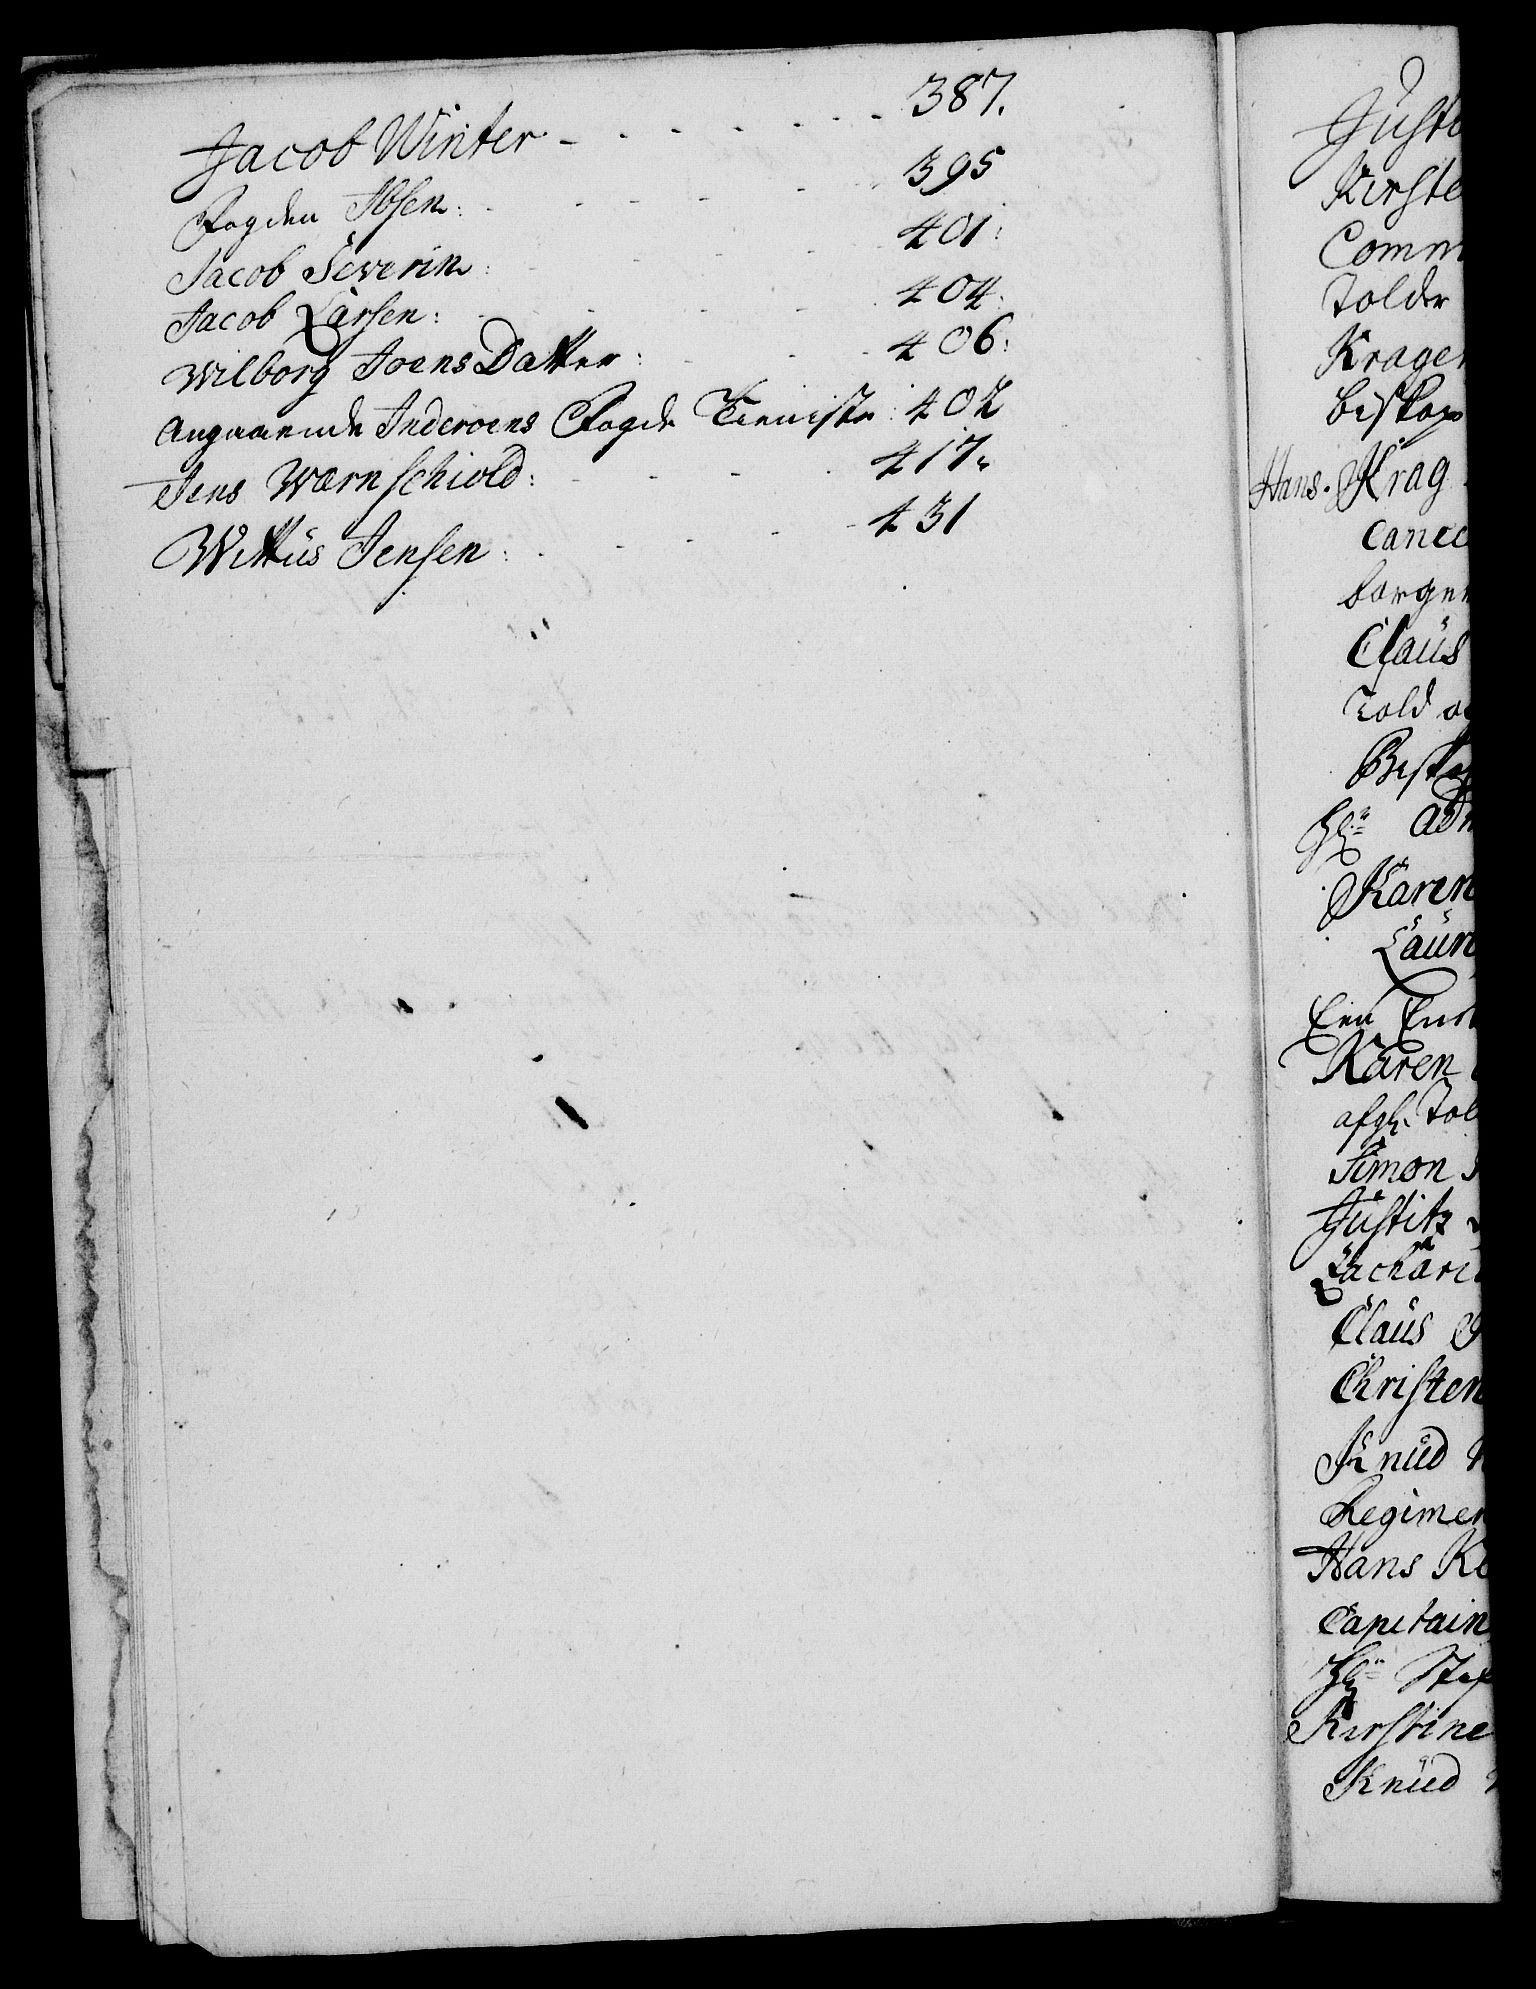 Jacob Winter - - - - - - - 387.
Fogden Ibsen: - - - - - 395
Jacob Severin: - - - - 401:
Jacob Larsen: - - - - 404:
Wilborg Joens Datter: - - - 406:
Angaaende Inderoens Fogde Tieniste: 402
Jens Wærnschiold: - - - 417.
Wittus Jensen: - - - - 431
Kirste
Comm
Tolder
Krager
biskop
Hans Krag
Cance
borger
Claus
Told og
Bisko
Hr. Adm
Karen
Laur
Een
Karen
afg. Tol
Simon
Justitz
Zachari
Claus
Christen
Knud
Regimen
Hans Ke
Capitain
Hr.
Kirstine
Knud